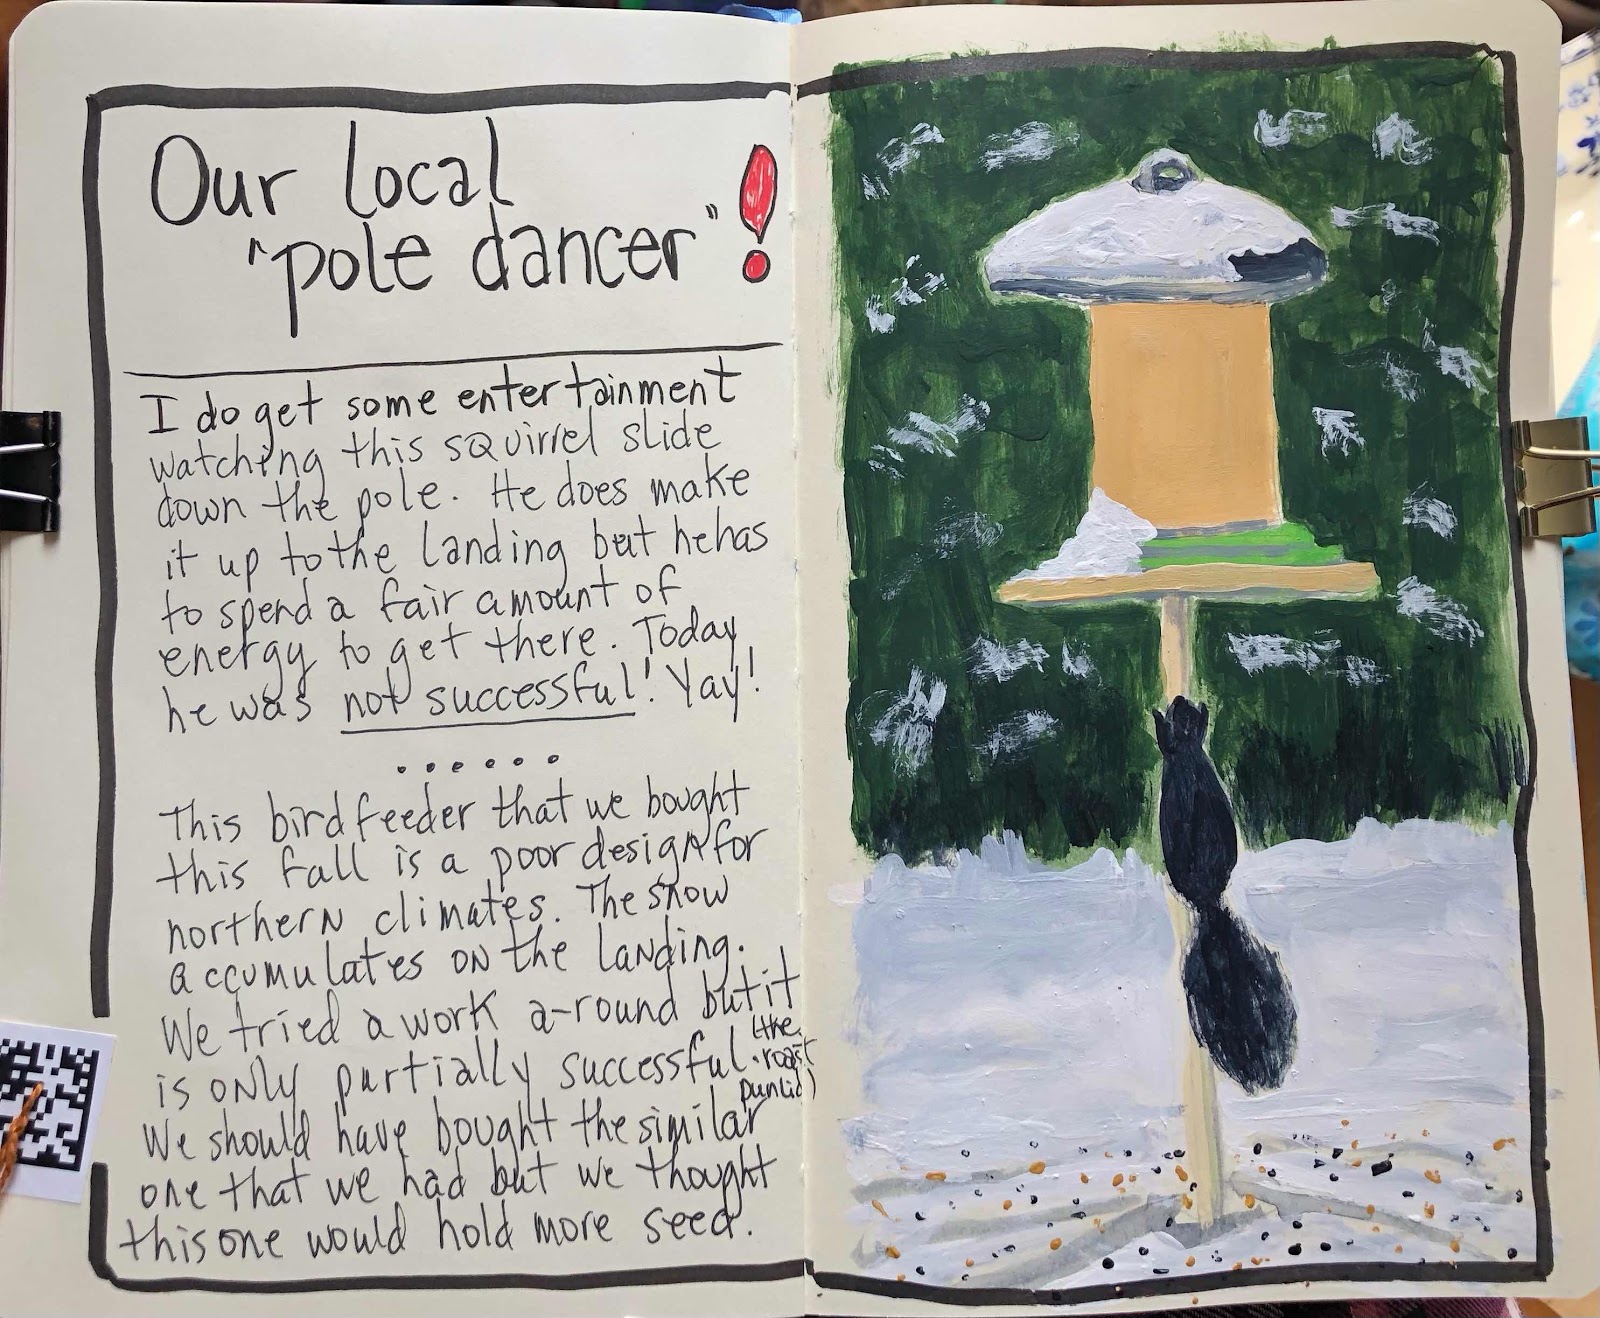 Our local
"pole dancer"!
I do get some entertainment
watching this squirrel slide
down the pole. He does make
it up to the landing but he has
to spend a fair amount of
energy to get there. Today
he was not successful! Yay!
......
This bird feeder that we bought
this fall is a poor design for
northern climates. The snow
accumulates on the landing.
We tried a work a-round but it
is only partially successful. (the
roast
pan lid)
We should have bought the similar
one that we had but we thought
this one would hold more seed.